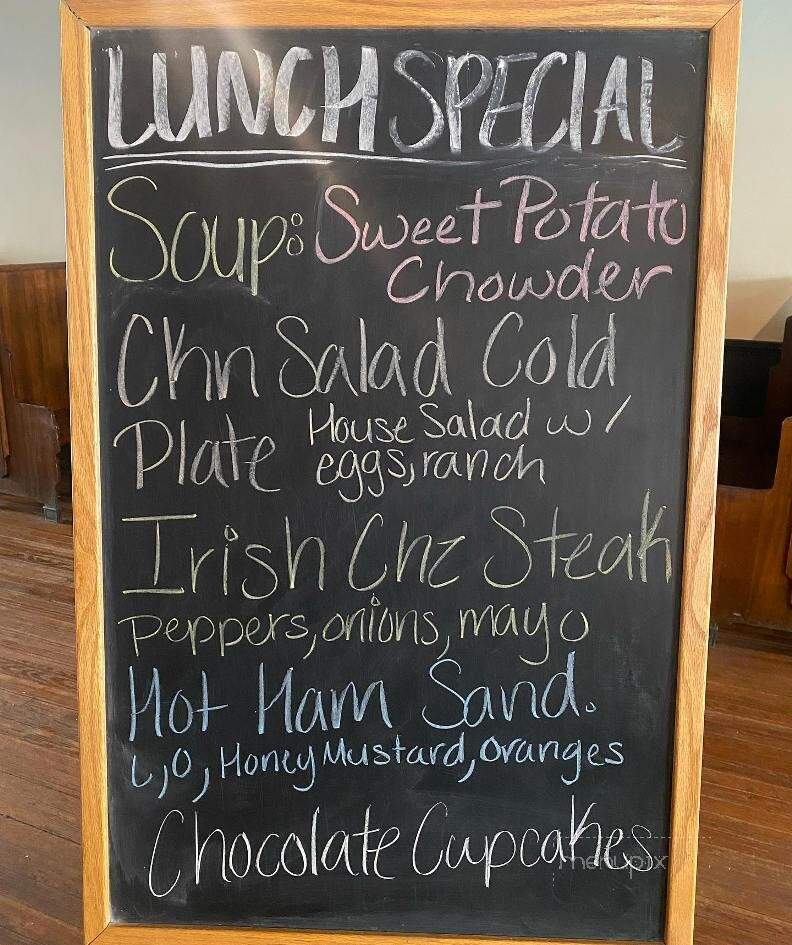 LUNCH SPECIAL
Soup: Sweet Potato
Chowder
Chn Salad Cold
Plate House Salad w/
eggs, ranch
Irish Chz Steak
peppers, onions, mayo
Hot Ham Sand.
L, O, Honey Mustard, oranges
Chocolate Cupcakes
menupix